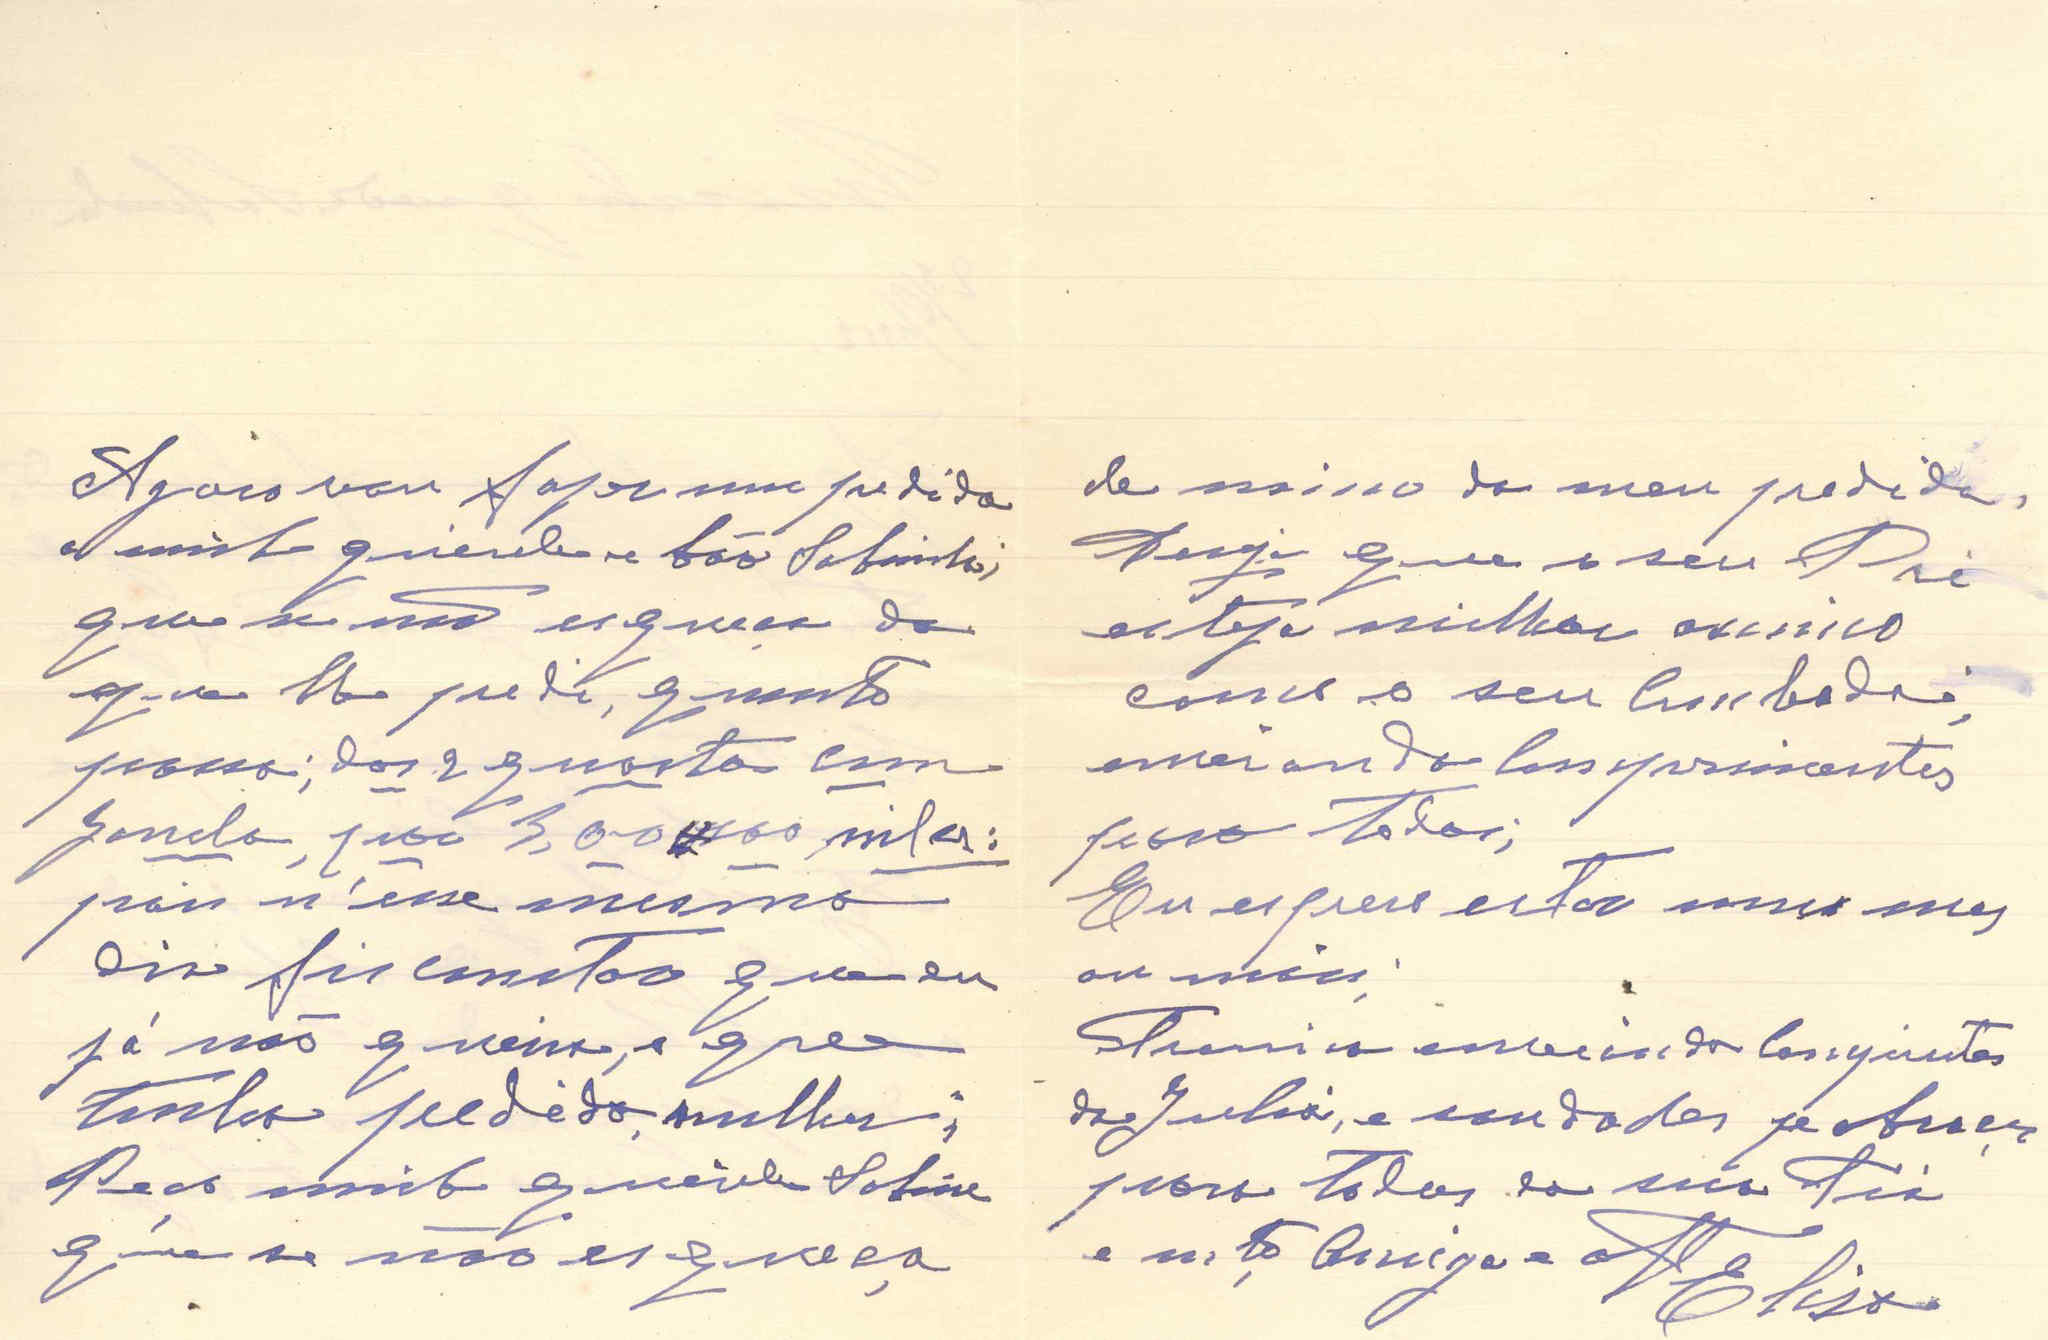 Agora vou fazer um pedido
a minha querida e bôa Sobrinha,
que se não esqueça do
que lhe pedi, quanto
possa; dos 2 quartos com
Janela, por 3,00 mil rs:
pois n'esse mesmo
dia fis constar que eu
já não queria, e que
tinha pedido, milhor;
Peço minha querida Sobrinha
que se não esqueça
do meu pedido,
Desejo que o seu Pai
esteja milhor assim
como o seu Cunhado;
enviando Comprimentos
para todos;
Eu espero estar um mes
ou mais;
Termino enviando Compimtos
da Julia, e saudades e Abraços
para todos da sua Tia
e mto Amiga e
Elisa